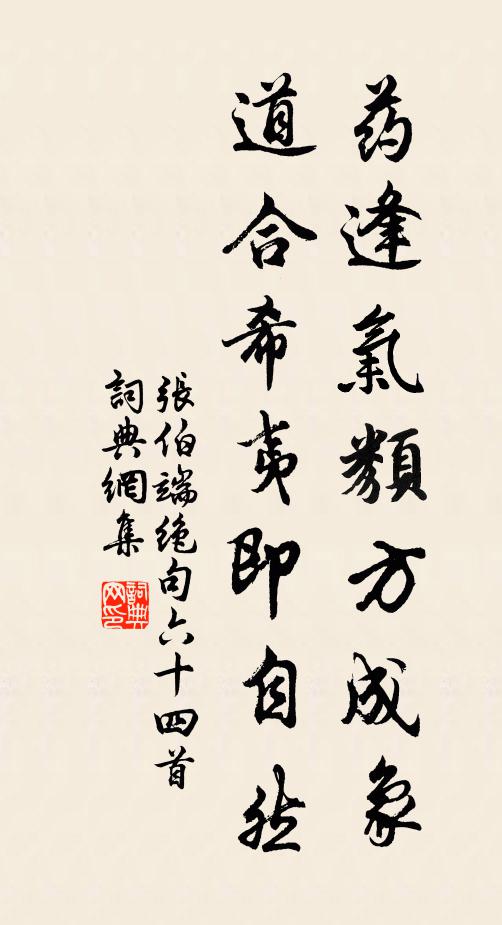 药逢氣類方成象
道合希夷即自然
張伯端絶句六十四首
詞典網集
詞典
网印